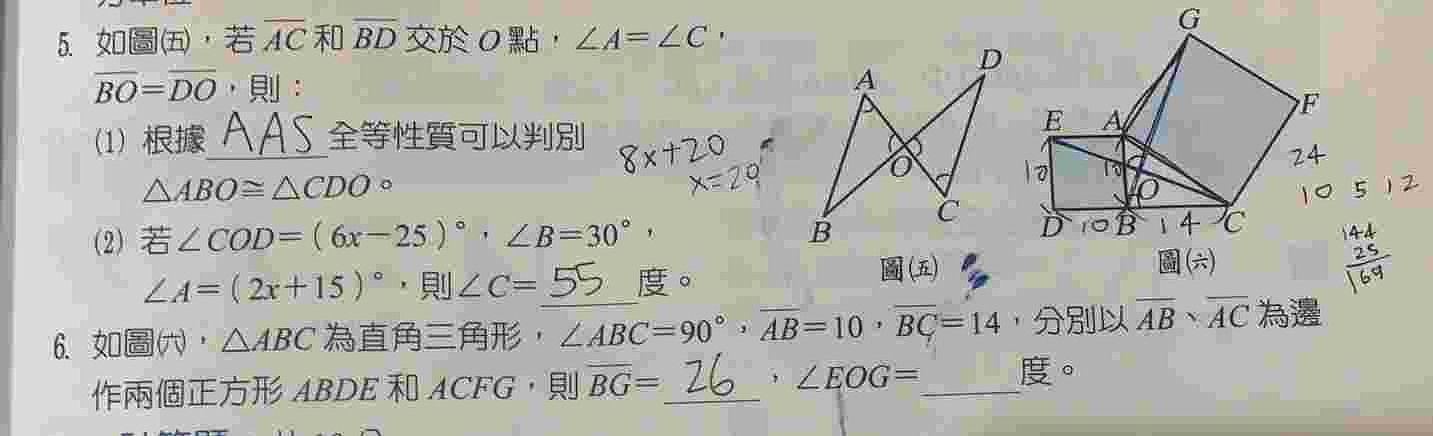 5. 如圖㈤，若 AC 和 BD 交於 O 點，∠A=∠C，
BO=DO，則：
(1) 根據 AAS 全等性質可以判別
△ABO≅△CDO。
(2) 若∠COD=(6x−25)°，∠B=30°，
∠A=(2x+15)°，則∠C= 55 度。
8x+20
x=20
A
D
O
B
C
圖㈤
G
E
A
F
10
10
O
D 10 B 14 C
圖㈥
24
10 5 12
144
25
169
6. 如圖㈥，△ABC 為直角三角形，∠ABC=90°，AB=10，BC=14，分別以 AB、AC 為邊
作兩個正方形 ABDE 和 ACFG，則 BG= 26 ，∠EOG=____度。